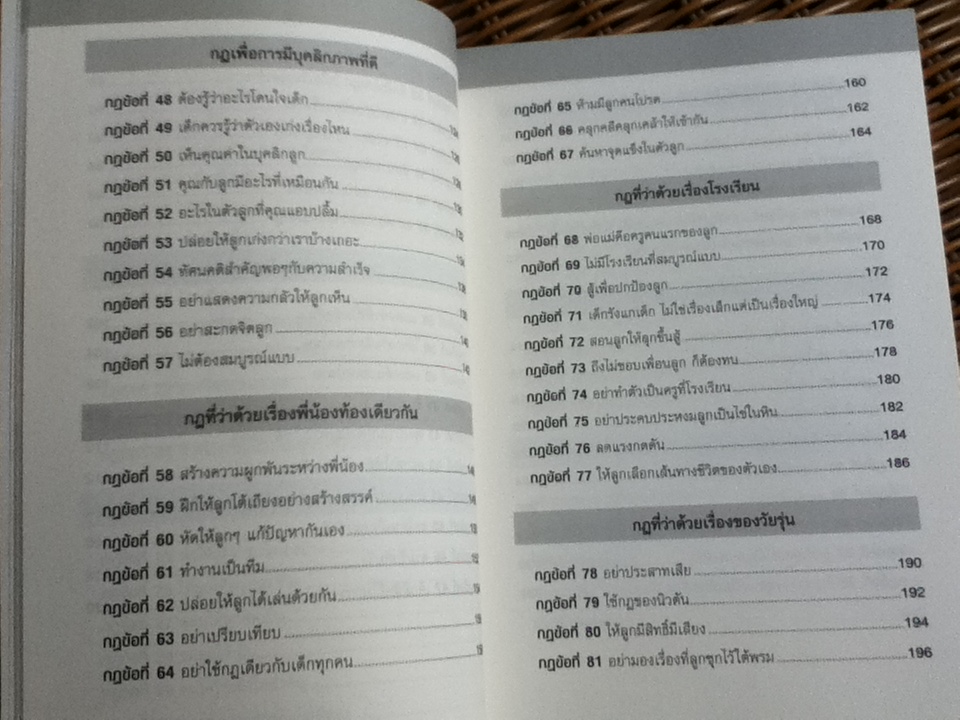 กฎเพื่อการมีบุคลิกภาพที่ดี
กฎข้อที่ 48 ต้องรู้ว่าอะไรโดนใจเด็ก
กฎข้อที่ 49 เด็กควรรู้ว่าตัวเองเก่งเรื่องไหน
กฎข้อที่ 50 เห็นคุณค่าในบุคลิกลูก
กฎข้อที่ 51 คุณกับลูกมีอะไรที่เหมือนกัน
กฎข้อที่ 52 อะไรในตัวลูกที่คุณแอบปลื้ม
กฎข้อที่ 53 ปล่อยให้ลูกเก่งกว่าเราบ้างเถอะ
กฎข้อที่ 54 ทัศนคติสำคัญพอๆกับความสำเร็จ
กฎข้อที่ 55 อย่าแสดงความกลัวให้ลูกเห็น
กฎข้อที่ 56 อย่าสะกดจิตลูก
กฎข้อที่ 57 ไม่ต้องสมบูรณ์แบบ
กฎที่ว่าด้วยเรื่องพี่น้องท้องเดียวกัน
กฎข้อที่ 58 สร้างความผูกพันระหว่างพี่น้อง
กฎข้อที่ 59 ฝึกให้ลูกโต้เถียงอย่างสร้างสรรค์
กฎข้อที่ 60 หัดให้ลูกๆ แก้ปัญหากันเอง
กฎข้อที่ 61 ทำงานเป็นทีม
กฎข้อที่ 62 ปล่อยให้ลูกได้เล่นด้วยกัน
กฎข้อที่ 63 อย่าเปรียบเทียบ
กฎข้อที่ 64 อย่าใช้กฎเดียวกับเด็กทุกคน
กฎข้อที่ 65 ห้ามมีลูกคนโปรด 160
กฎข้อที่ 66 คลุกคลีคลุกเคล้าให้เข้ากัน 162
กฎข้อที่ 67 ค้นหาจุดแข็งในตัวลูก 164
กฎที่ว่าด้วยเรื่องโรงเรียน
กฎข้อที่ 68 พ่อแม่คือครูคนแรกของลูก 168
กฎข้อที่ 69 ไม่มีโรงเรียนที่สมบูรณ์แบบ 170
กฎข้อที่ 70 สู้เพื่อปกป้องลูก 172
กฎข้อที่ 71 เด็กรังแกเด็ก ไม่ใช่เรื่องเล็กแต่เป็นเรื่องใหญ่ 174
กฎข้อที่ 72 สอนลูกให้ลุกขึ้นสู้ 176
กฎข้อที่ 73 ถึงไม่ชอบเพื่อนลูก ก็ต้องทน 178
กฎข้อที่ 74 อย่าทำตัวเป็นครูที่โรงเรียน 180
กฎข้อที่ 75 อย่าประคบประหงมลูกเป็นไข่ในหิน 182
กฎข้อที่ 76 ลดแรงกดดัน 184
กฎข้อที่ 77 ให้ลูกเลือกเส้นทางชีวิตของตัวเอง 186
กฎที่ว่าด้วยเรื่องของวัยรุ่น
กฎข้อที่ 78 อย่าประสาทเสีย 190
กฎข้อที่ 79 ใช้กฎของนิวตัน 192
กฎข้อที่ 80 ให้ลูกมีสิทธิ์มีเสียง 194
กฎข้อที่ 81 อย่ามองเรื่องที่ลูกซุกไว้ใต้พรม 196